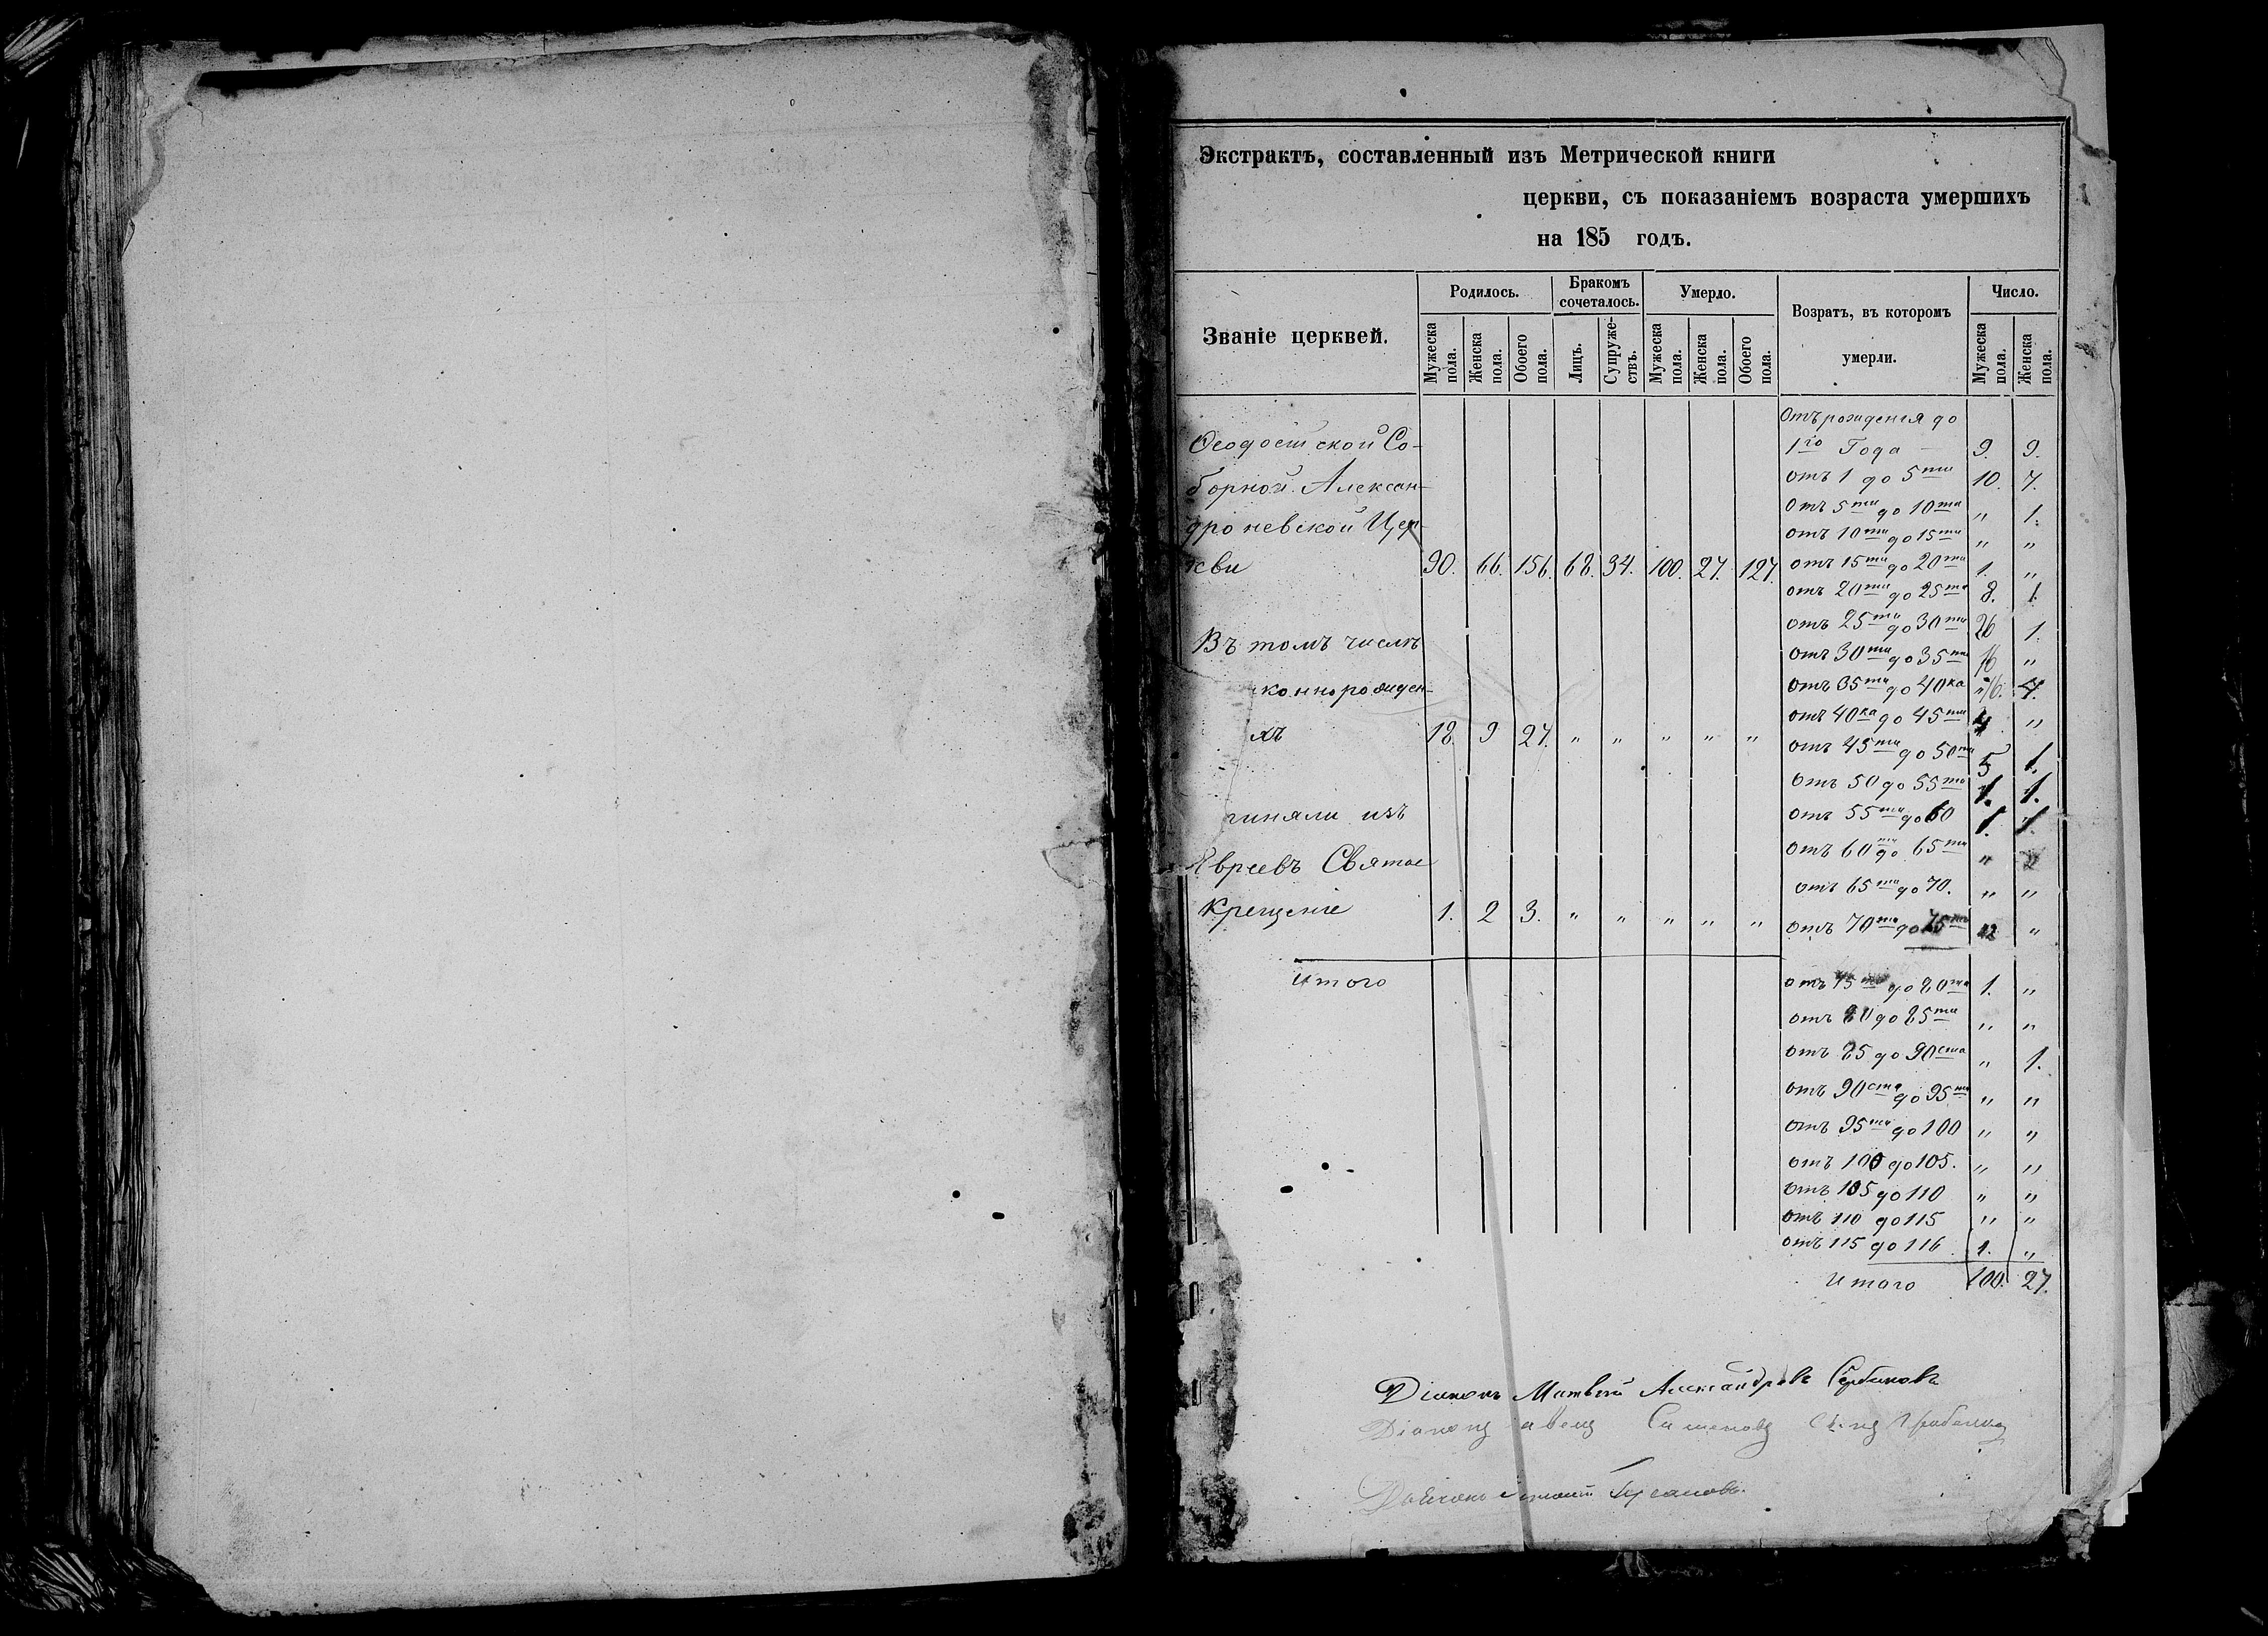 Экстрактъ, составленный изъ Метрической книги
церкви, съ показаніемъ возраста умершихъ
на 185 годъ.
Званіе церквей.
Родилось.
Бракомъ сочеталось.
Умерло.
Возратъ, въ которомъ умерли.
Число.
Мужеска пола.
Женска пола.
Обоего пола.
Лицъ.
Супружествъ.
Мужеска пола.
Женска пола.
Обоего пола.
Мужеска пола.
Женска пола.
Ѳеодосійской Со-
борной Алексан-
дроневской Цер-
кви 90. 66. 156. 68. 34. 100. 27. 127.
Въ томъ числѣ
коннорожден-
хъ 18. 9 27. " " " " "
чиняли изъ
Евреевъ Святое
Крещеніе 1. 2 3. " " " " "
Итого
Отъ рожденія до
1го Года 9. 9.
отъ 1 до 5ти 10. 7.
отъ 5ти до 10ти " 1.
отъ 10ти до 15ти " "
отъ 15ти до 20ти 1. "
отъ 20ти до 25ти 8. 1.
отъ 25ти до 30ти 26 1.
отъ 30ти до 35ти 16 "
отъ 35ти до 40ка 16. 4.
отъ 40ка до 45ти 4 "
отъ 45ти до 50ти 5 1.
отъ 50 до 55ти 1. 1.
отъ 55ти до 60 1. 1.
отъ 60ти до 65ти " "
отъ 65ти до 70. " "
отъ 70ти до 75ти 2 "
отъ 75ти до 80ти 1. "
отъ 80 до 85ти " "
отъ 85 до 90ста " 1.
отъ 90ста до 95ти " "
отъ 95ти до 100 " "
отъ 100 до 105. " "
отъ 105 до 110 " "
отъ 110 до 115 " "
отъ 115 до 116 1. "
Итого 100. 27.
Діаконъ Матвѣй Александровъ Сербиновъ
Діаконъ